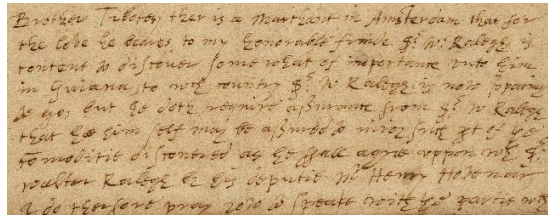 Brother Tibotes, ther is a marchant in Amsterdam that for
the love he beares to my honorable frinde Sr Wr Ralegh is
content to discover some what of importance unto him
in Guiana, to wch country Sr W Ralegh is now
to go, but he doth require assurance from Sr W Ralegh
that he him self may be assured to such pt of the
comoditie discovered as he shall agree uppon wth Sr
walter Ralegh or his deputie Mr Henry
I do therfore pray yow to speake with the partie